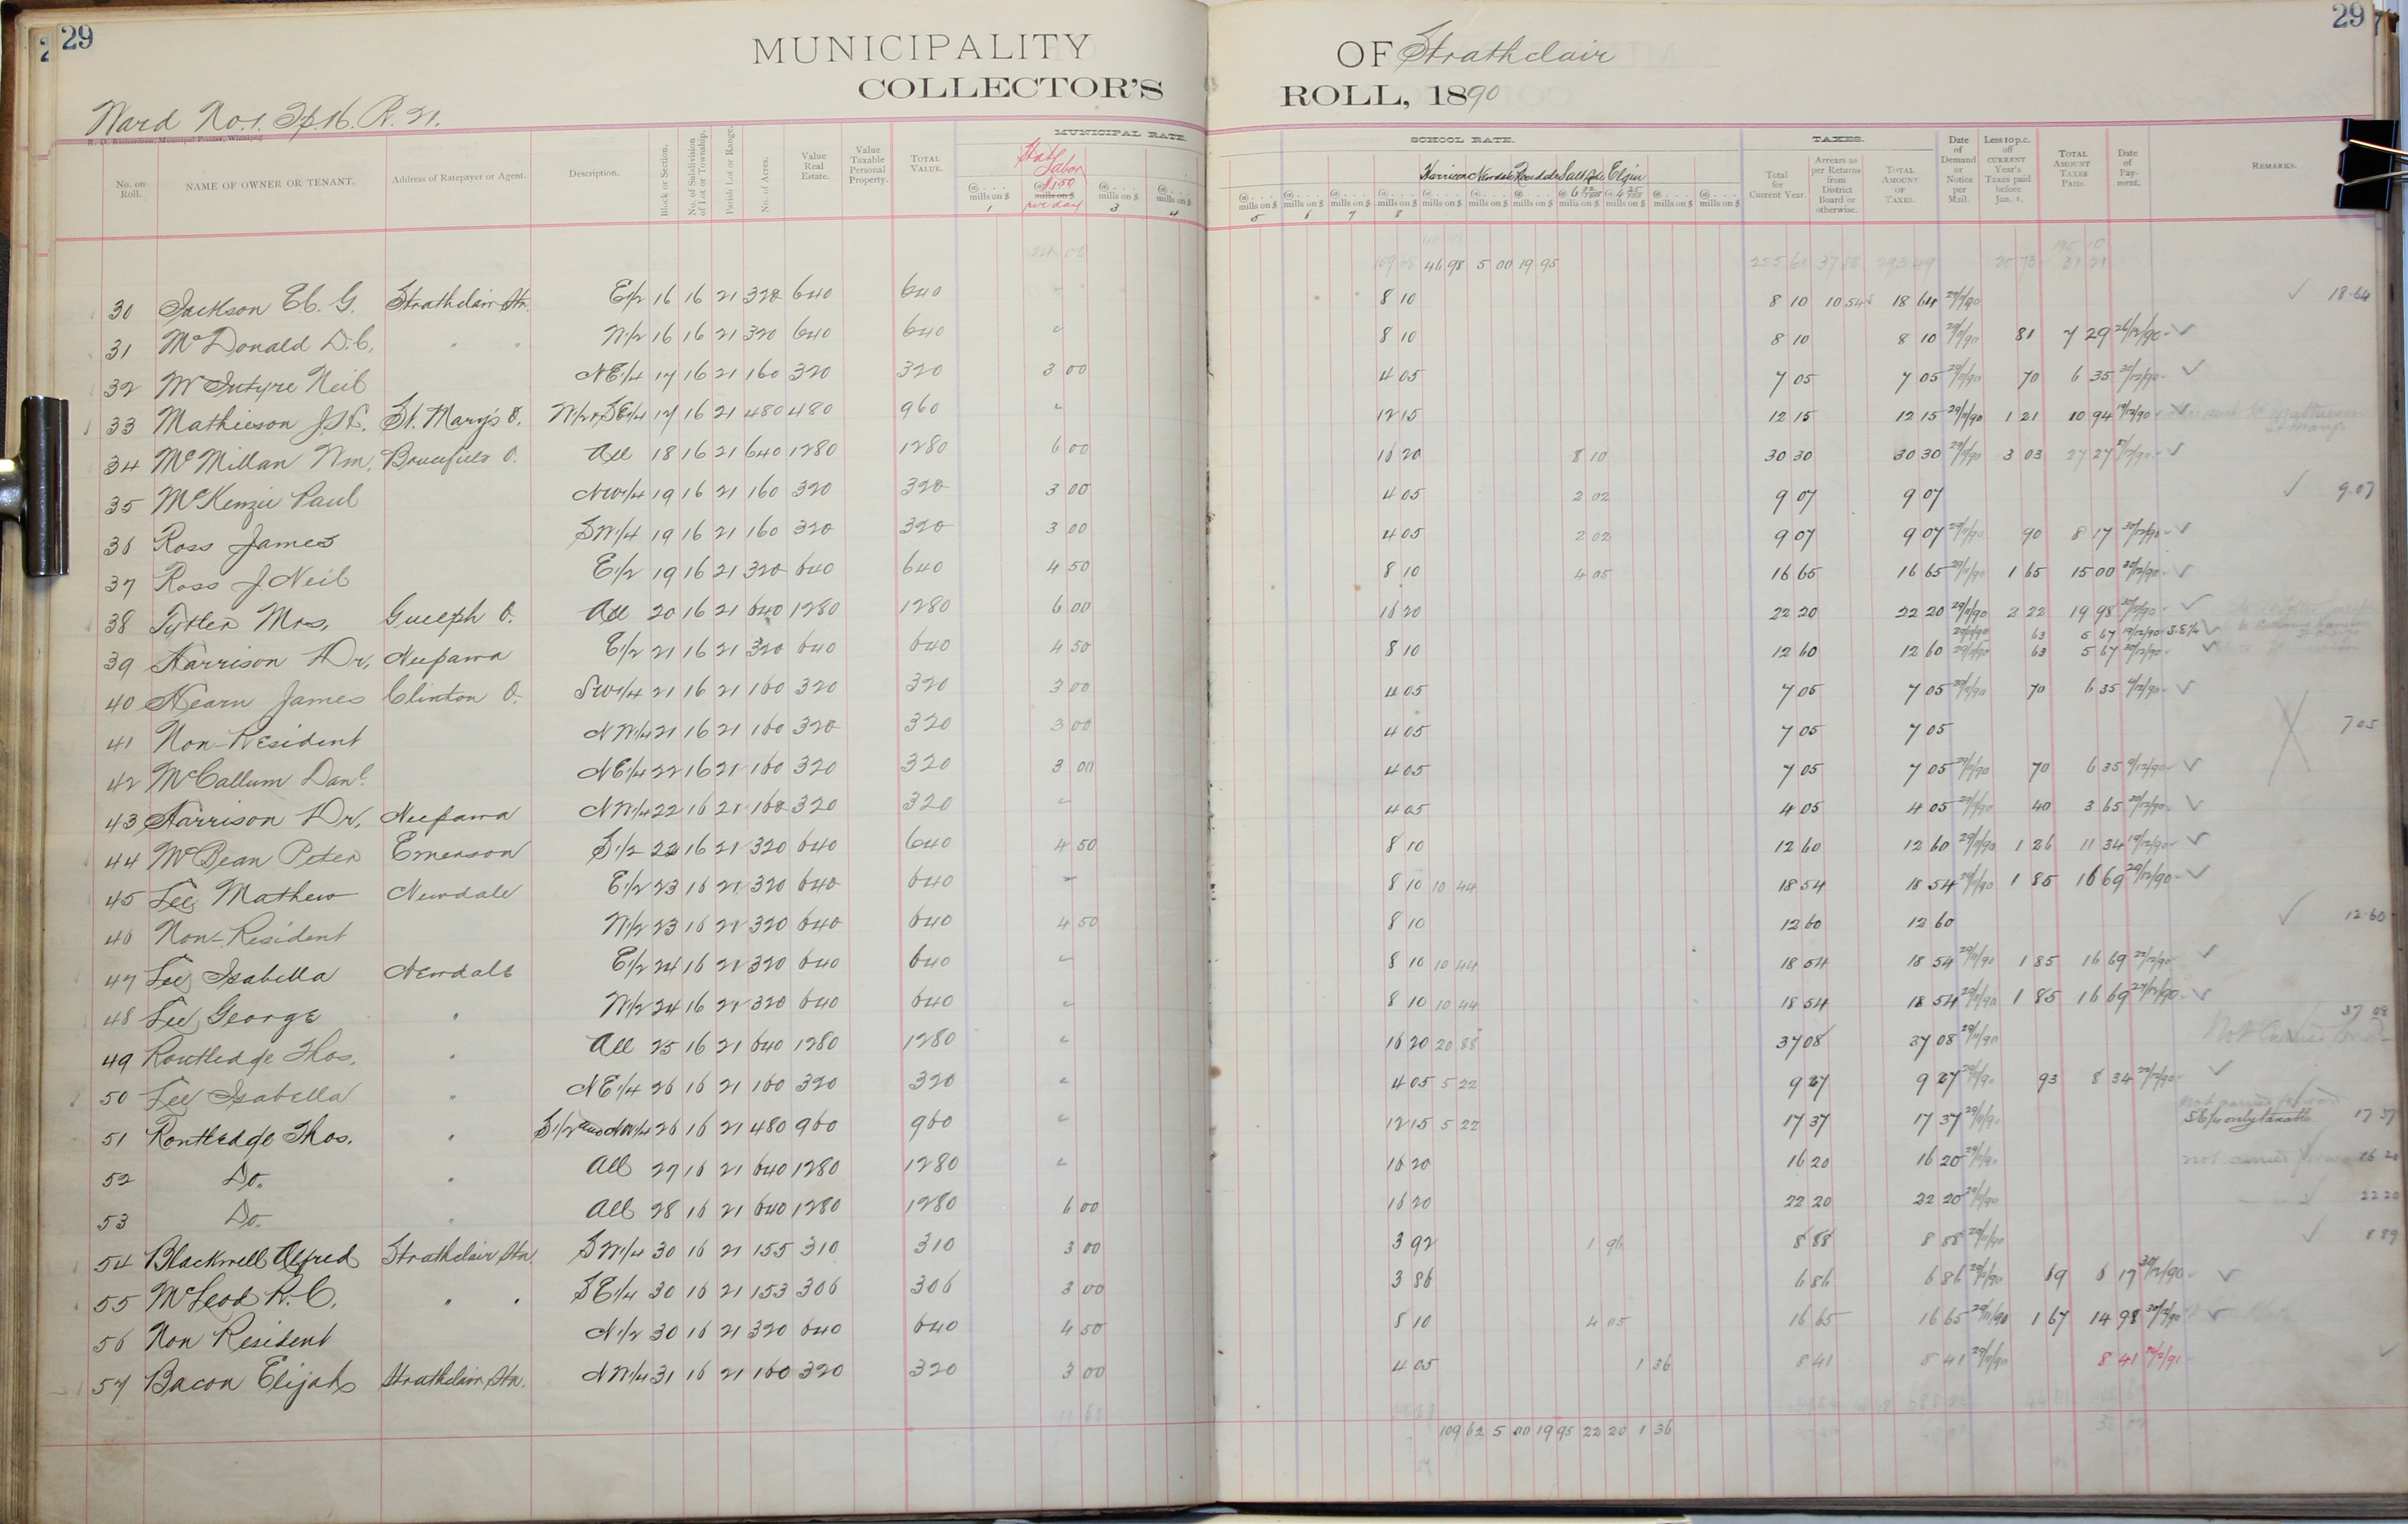 29
MUNICIPALITY OF Strathclair
29
COLLECTOR'S ROLL, 1890
Ward No.1. Tp.16. R. 21.
R. D. Richardson, Municipal Printer, Winnipeg.
MUNICIPAL RATE. SCHOOL RATE. TAXES.
No. on Roll. NAME OF OWNER OR TENANT. Address of Ratepayer or Agent. Description. Block or Section. No. of Subdivision of Lot or Township. Parish Lot or Range. No. of Acres. Value Real Estate. Value Taxable Personal Property. TOTAL VALUE. Stat Labor $1.50 per day Harrison Newdale Elgin Total for Current Year. Arrears as per Returns from District Board or otherwise. TOTAL AMOUNT OF TAXES. Date of Demand or Notice per Mail. Less 10 p.c. off CURRENT Year's Taxes paid before Jan. 1. TOTAL AMOUNT TAXES PAID. Date of Payment. REMARKS.
46 98 5 00 19 95 255 61 293 49 20 73
30 Jackson Eb. G. Strathclair Stn. E1/2 16 16 21 320 640 640 8 10 8 10 10 54 18 64 29/11/90 18.64
31 McDonald D.C. " " W1/2 16 16 21 320 640 640 " 8 10 8 10 8 10 29/11/90 81 7 29 26/12/90
32 McIntyre Neil NE1/4 17 16 21 160 320 320 3 00 4 05 7 05 7 05 29/11/90 70 6 35 30/12/90
33 Mathieson J. St. Mary's O. W1/2 & SE1/4 17 16 21 480 480 960 " 12 15 12 15 12 15 29/11/90 1 21 10 94 19/12/90
34 McMillan Wm. Brucefield O. All 18 16 21 640 1280 1280 6 00 16 20 8 10 30 30 30 30 29/11/90 3 03 27 27
35 McKenzie Paul NW1/4 19 16 21 160 320 320 3 00 4 05 2 02 9 07 9 07 9.07
36 Ross James SW1/4 19 16 21 160 320 320 3 00 4 05 2 02 9 07 9 07 29/11/90 90 8 17 30/12/90
37 Ross J Neil E1/2 19 16 21 320 640 640 4 50 8 10 4 05 16 65 16 65 29/11/90 1 65 15 00 30/12/90
38 Tytler Mrs, Guelph O. All 20 16 21 640 1280 1280 6 00 16 20 22 20 22 20 29/11/90 2 22 19 98 30/12/90
29/11/90 63 5 67 19/12/90 S.E1/4
39 Harrison Dr, Neepawa E1/2 21 16 21 320 640 640 4 50 8 10 12 60 12 60 29/11/90 63 5 67 30/12/90
40 Hearn James Clinton O. SW1/4 21 16 21 160 320 320 3 00 4 05 7 05 7 05 29/11/90 70 6 35 9/12/90
41 Non-Resident NW1/4 21 16 21 160 320 320 3 00 4 05 7 05 7 05 7 05
42 McCallum Danl. NE1/4 22 16 21 160 320 320 3 00 4 05 7 05 7 05 29/11/90 70 6 35 9/12/90
43 Harrison Dr, Neepawa NW1/4 22 16 21 160 320 320 " 4 05 4 05 4 05 29/11/90 40 3 65 30/12/90
44 McBean Peter Emerson S1/2 22 16 21 320 640 640 4 50 8 10 12 60 12 60 29/11/90 1 26 11 34 19/12/90
45 Lee Mathew Newdale E1/2 23 16 21 320 640 640 " 8 10 10 44 18 54 18 54 29/11/90 1 85 16 69 29/12/90
46 Non-Resident W1/2 23 16 21 320 640 640 4 50 8 10 12 60 12 60 12.60
47 Lee Isabella Newdale E1/2 24 16 21 320 640 640 " 8 10 10 44 18 54 18 54 29/11/90 1 85 16 69 22/12/90
48 Lee George " W1/2 24 16 21 320 640 640 " 8 10 10 44 18 54 18 54 29/11/90 1 85 16 69 22/12/90
49 Routledge Thos. " All 25 16 21 640 1280 1280 " 16 20 20 88 37 08 37 08 29/11/90 Not Carried 37 08
50 Lee Isabella " NE1/4 26 16 21 160 320 320 " 4 05 5 22 9 27 9 27 29/11/90 93 8 34 22/12/90
not carried forward
51 Routledge Thos. " S1/2 and NW1/4 26 16 21 480 960 960 " 12 15 5 22 17 37 17 37 29/11/90 SE1/4 only taxable 17 37
52 Do. " All 27 16 21 640 1280 1280 " 16 20 16 20 16 20 29/11/90 not carried forward 16 20
53 Do. " All 28 16 21 640 1280 1280 6 00 16 20 22 20 22 20 29/11/90 22 20
54 Blackwell Alfred Strathclair Stn. SW1/4 30 16 21 155 310 310 3 00 3 92 1 96 8 88 8 88 29/11/90 8 89
55 McLeod R. C. " " SE1/4 30 16 21 153 306 306 3 00 3 86 6 86 6 86 29/11/90 69 6 17 30/12/90
56 Non Resident N1/2 30 16 21 320 640 640 4 50 8 10 4 05 16 65 16 65 29/11/90 1 67 14 98 30/12/90
57 Bacon Elijah Strathclair Stn. NW1/4 31 16 21 160 320 320 3 00 4 05 1 36 8 41 8 41 29/11/90 8 41
109 62 5 00 19 95 22 20 1 36